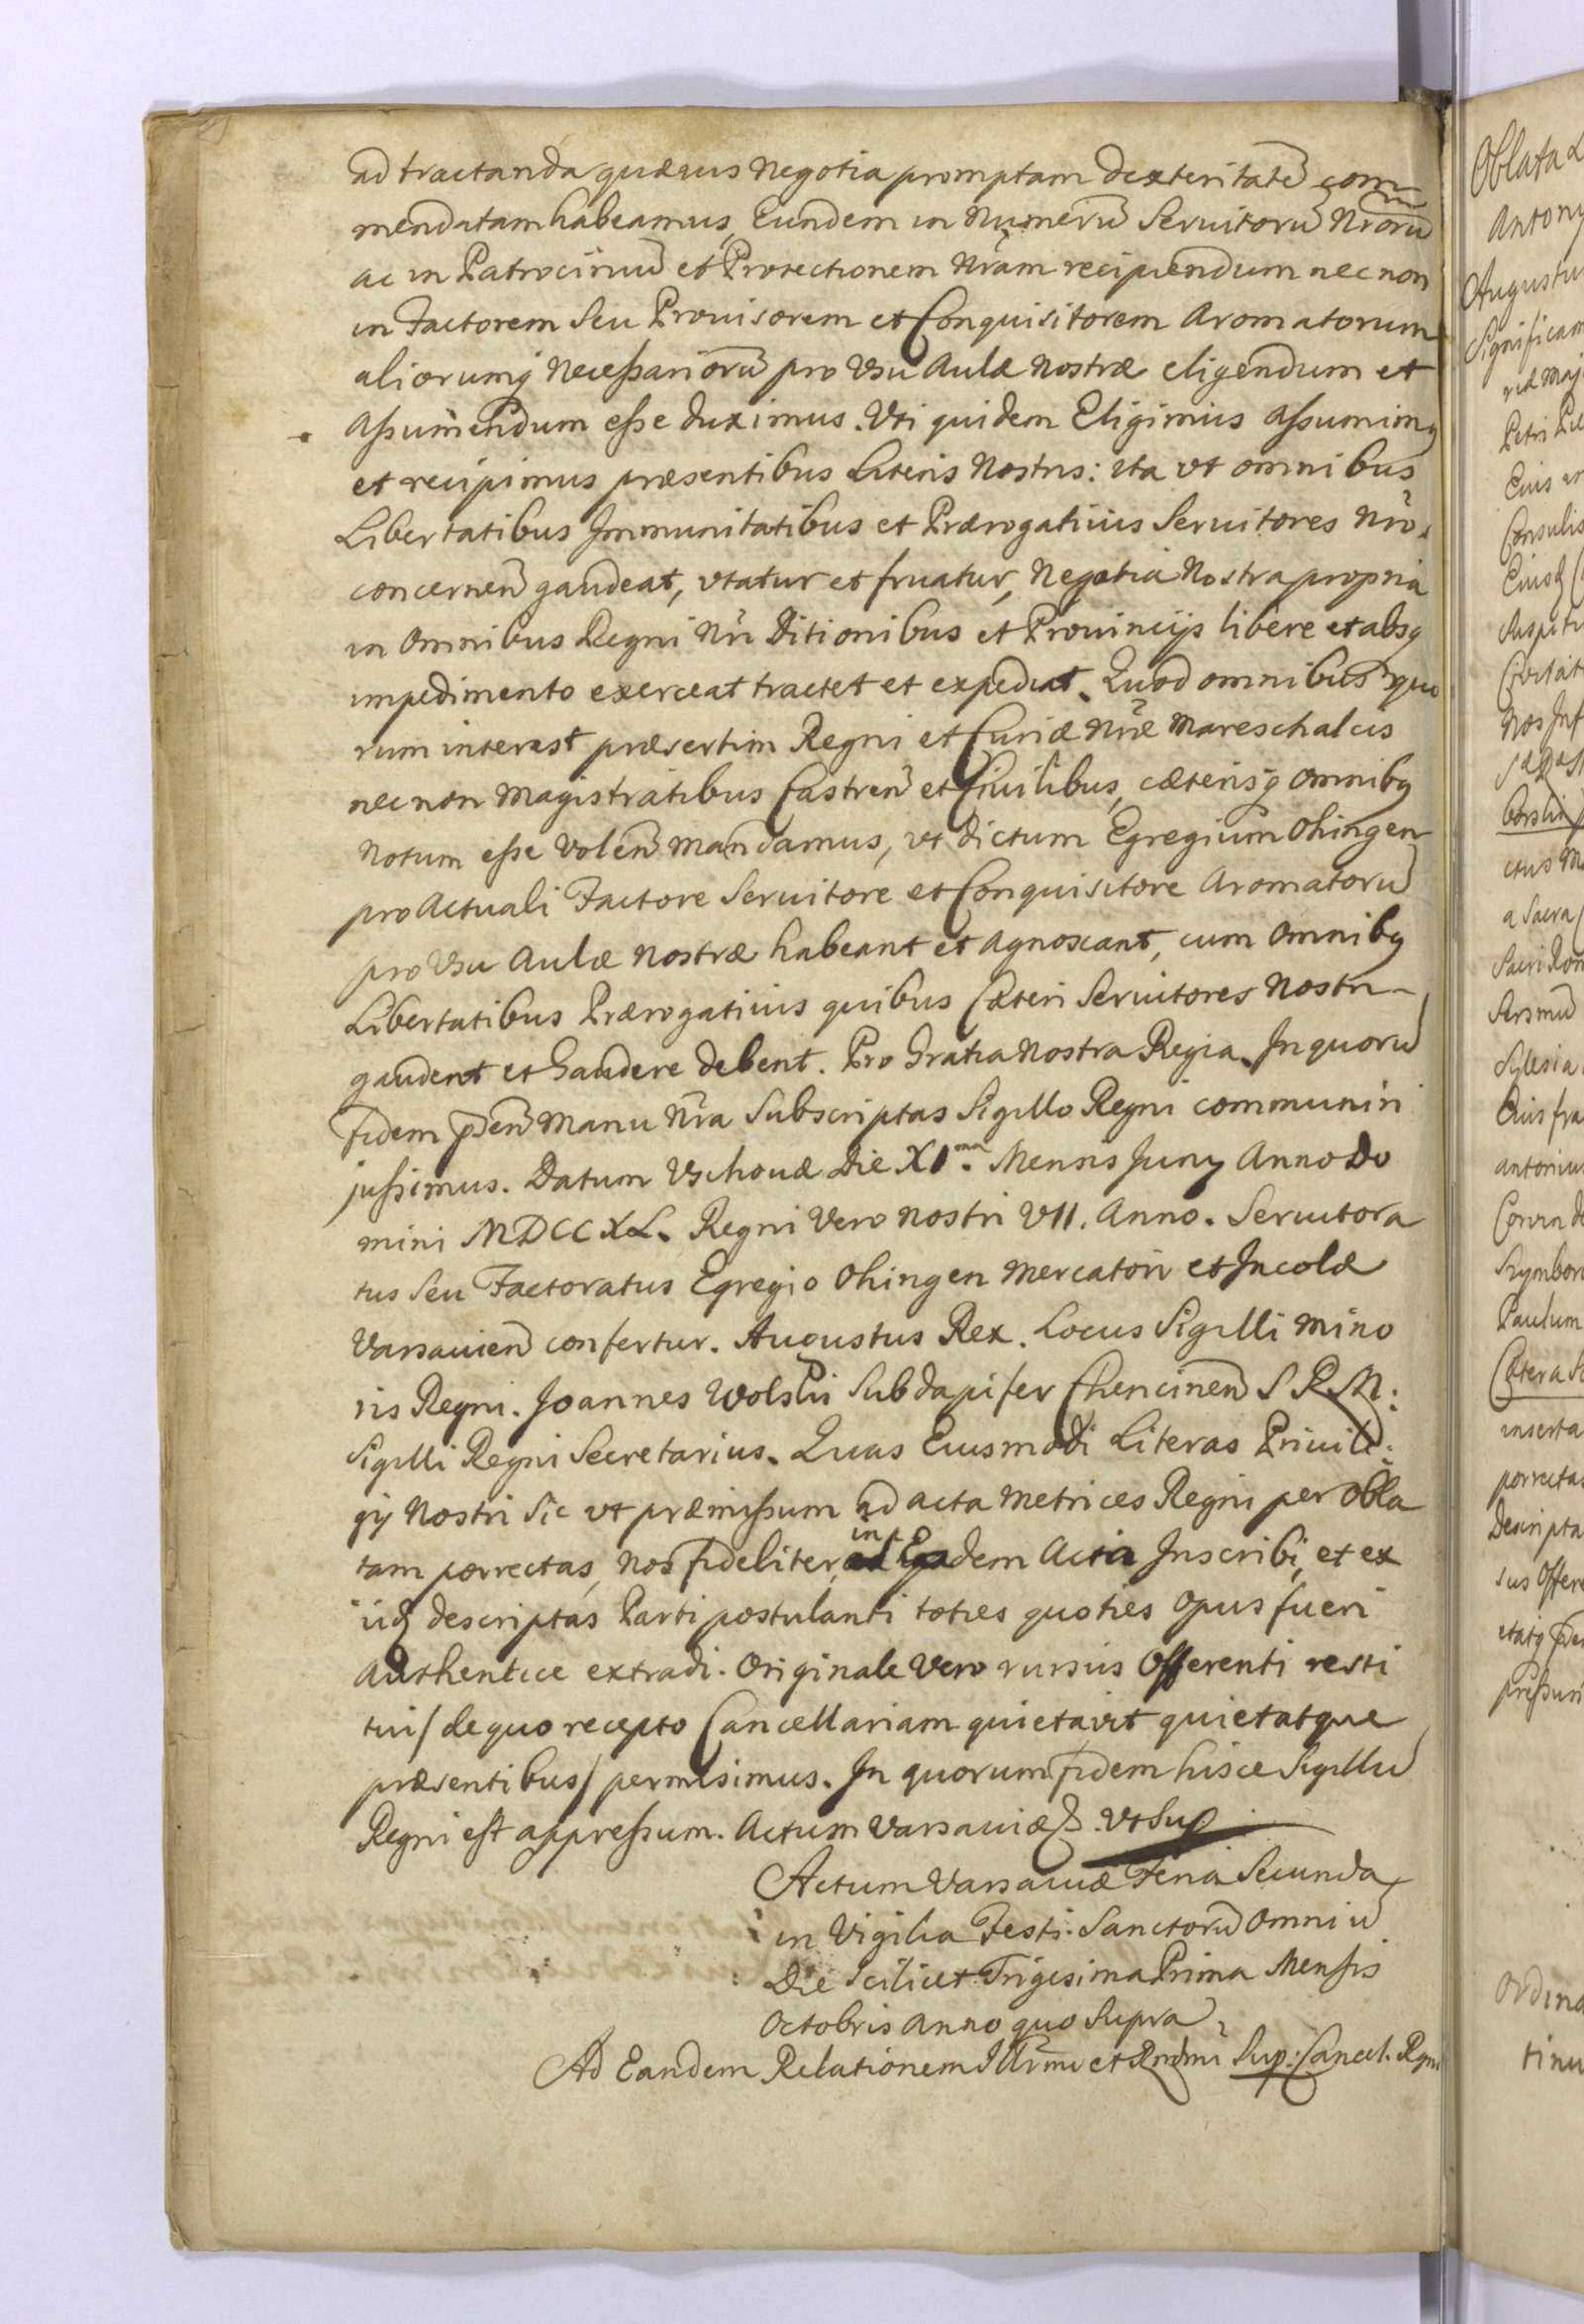 ad tractanda quævis Negotia promptam dexteritatē com
mendatam habeamus, Eundem in Numerū Servitorū Nrorū
ac in Patrociniū et Protectionem Nram recipiendum nec non
in Factorem seu Provisorem et Conquisitorem Aromatorum
aliorumq́ Necessariorū pro Vsu Aulæ Nostræ eligendum et
Assumendum esse duximus. Vti quidem Eligimus Assumimq
et recipimus præsentibus Literis Nostris: ita vt omnibus
Libertatibus Immunitatibus et Prærogativis Servitores Nro.
concernen̄ gaudeat, vtatur et fruatur, Negotia Nostra propria
in Omnibus Regni Nri Ditionibus et Provincijs libere et absq
impedimento exerceat tractet et expediat. Quod omnibus quo
rum interest præsertim Regni et Curiæ Nræ Mareschalcis
nec non Magistratibus Castren̄ et Civilibus, cæterisq́ Omnibq
Notum esse Volen̄ Mandamus, vt dictum Egregium Ohingen
pro Actuali Factore Servitore et Conquisitore Aromatorū
pro Vsu Aulæ Nostræ habeant et Agnoscant, cum Omnibq
Libertatibus Prærogativis quibus Cæteri Servitores Nostri
gaudent et Gaudere debent. Pro Gratia Nostra Regia. In quorū
fidem p̄sen̄ Manu Nra Subscriptas Sigillo Regni communiri
jussimus. Datum Vschovæ Die XIma. Mensis Juny Anno Do
mini MDCCXL. Regni Vero nostri VII. Anno. Servitora
tus Seu Factoratus Egregio Ohingen Mercatori et Incolæ
Varsavien̄ confertur. Augustus Rex. Locus Sigilli Mino
ris Regni. Joannes Wolski Subdapifer Chencinen̄ S R M:
Sigilli Regni Secretarius. Quas Eiusmodi Literas Privile:
gij Nostri Sic vt præmissum ad acta Metrices Regni per Obla
tam porrectas, Nos fideliter, in Eadem Acta Inscribi, et ex
ijsd descriptas Parti postulanti toties quoties Opus fueri
Authentice extradi. Originale Vero rursus Offerenti resti
tui/ de quo recepto Cancellariam quietavit quietatque
præsentibus/ permisimus. In quorum fidem hisce Sigillū
Regni est appressum. Actum Varsaviæ. Vt Sup
Actum Varsaviæ Feria Secunda
in Vigilia Festi Sanctorū Omniū
Die scilicet Trigesima Prima Mensis
Octobris Anno quo Supra
Ad Eandem Relationem Illmi et Rndmi Sup: Cancel. Rgni
Oblata
Antony
Augustu
Significam
riæ Maj
Petri
Consulis
Civitat
Nos Inf
a Sacra
Sacri Rom
Sylesia
Eius fra
antonius
Paulum
Cætera
inserta
porrectas
Descripta
sus Offere
Ordina
tinu